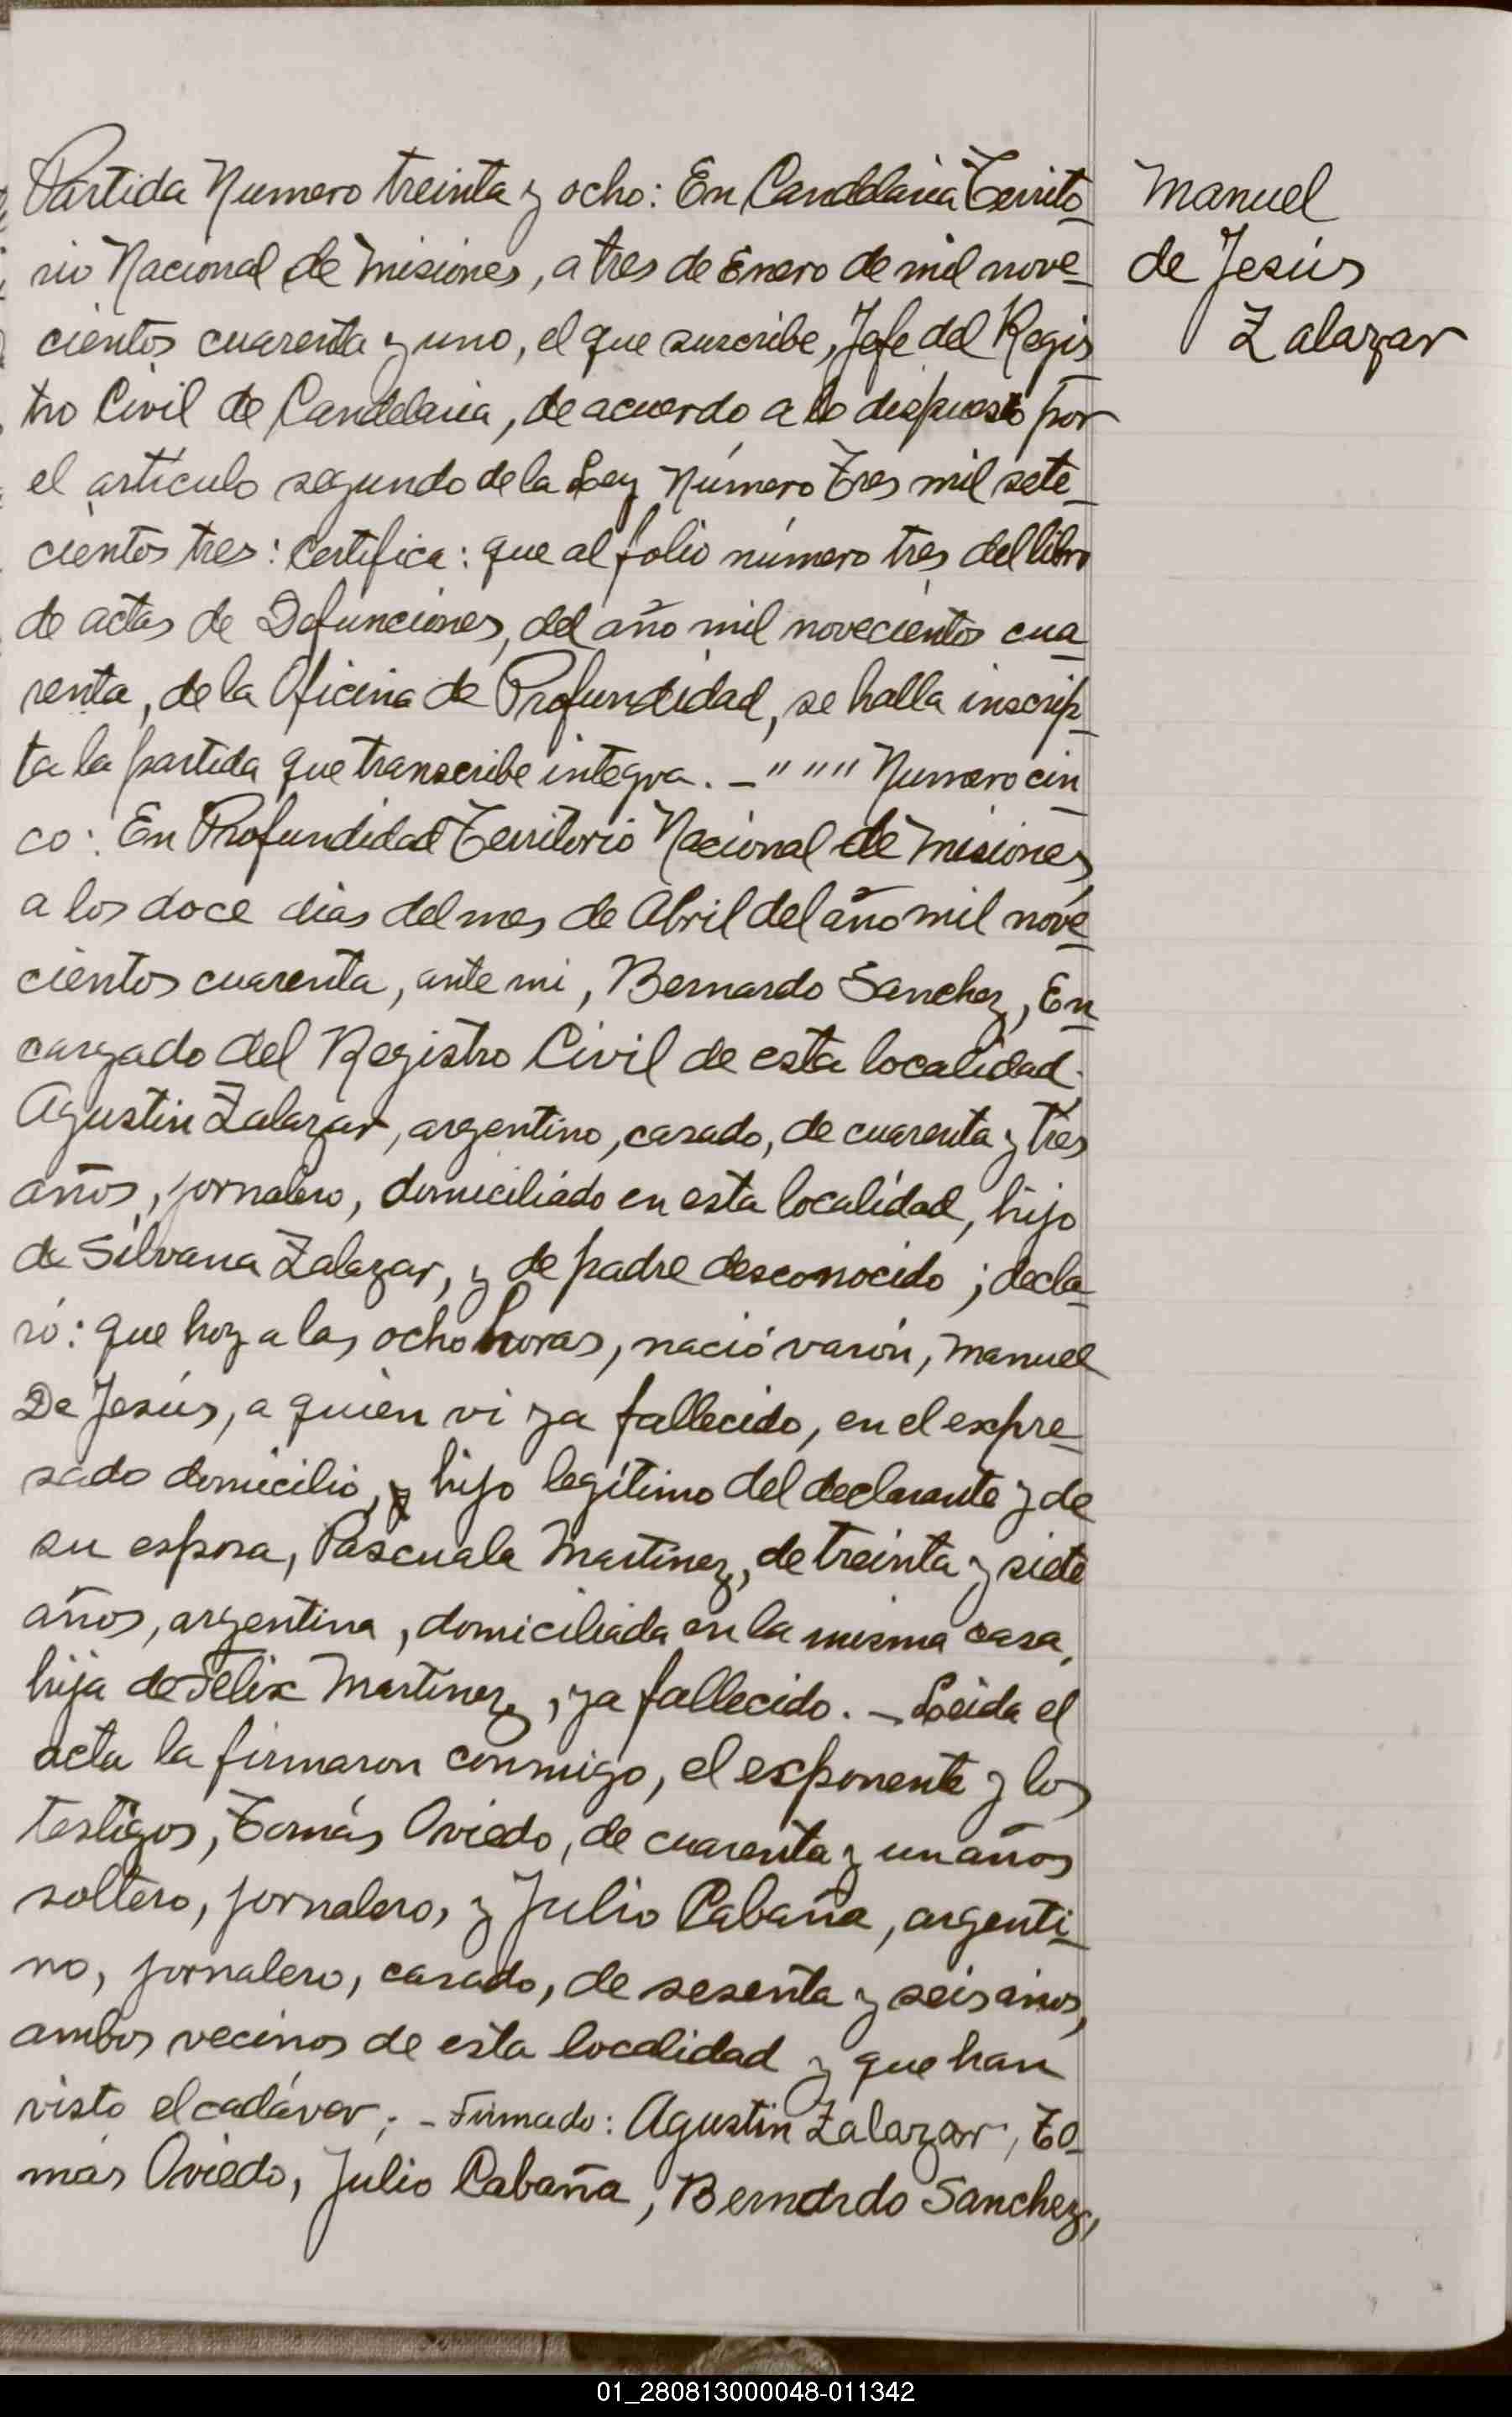 Partida Numero treinta y ocho: En Candelaria Territo-
rio Nacional de Misiones, a tres de Enero de mil nove-
cientos cuarenta y uno, el que suscribe, Jefe del Regis
tro Civil de Candelaria, de acuerdo a lo dispuesto por
el artículo segundo de la Ley Número Tres mil sete-
cientos tres: Certifica: que al folio número tres del libro
de actas de Defunciones, del año mil novecientos cua-
renta, de la Oficina de Profundidad, se halla inscrip-
ta la partida que transcribe integra. - " " " " Numero cin-
co: En Profundidad Territorio Nacional de Misiones,
a los doce dias del mes de Abril del año mil nove-
cientos cuarenta, ante mi, Bernardo Sanchez, En-
cargado del Registro Civil de esta localidad.
Agustin Zalazar, argentino, casado, de cuarenta y tres
años, jornalero, domiciliado en esta localidad, hijo
de Silvana Zalazar, y de padre desconocido; decla-
ró: que hoy a las ocho horas, nació varón, Manuel
De Jesús, a quien vi ya fallecido, en el expre-
sado domicilio, y hijo legítimo del declarante y de
su esposa, Pascuala Martinez, de treinta y siete
años, argentina, domiciliada en la misma casa,
hija de Felix Martinez, ya fallecido. - Leida el
acta la firmaron conmigo, el exponente y los
testigos, Tomás Oviedo, de cuarenta y un años
soltero, jornalero, y Julio Cabaña, argenti-
no, jornalero, casado, de sesenta y seis años,
ambos vecinos de esta localidad y que han
visto el cadáver; - Firmado: Agustin Zalazar, To-
más Oviedo, Julio Cabaña, Bernardo Sanchez,
Manuel
de Jesús
Zalazar
01_280813000048-011342